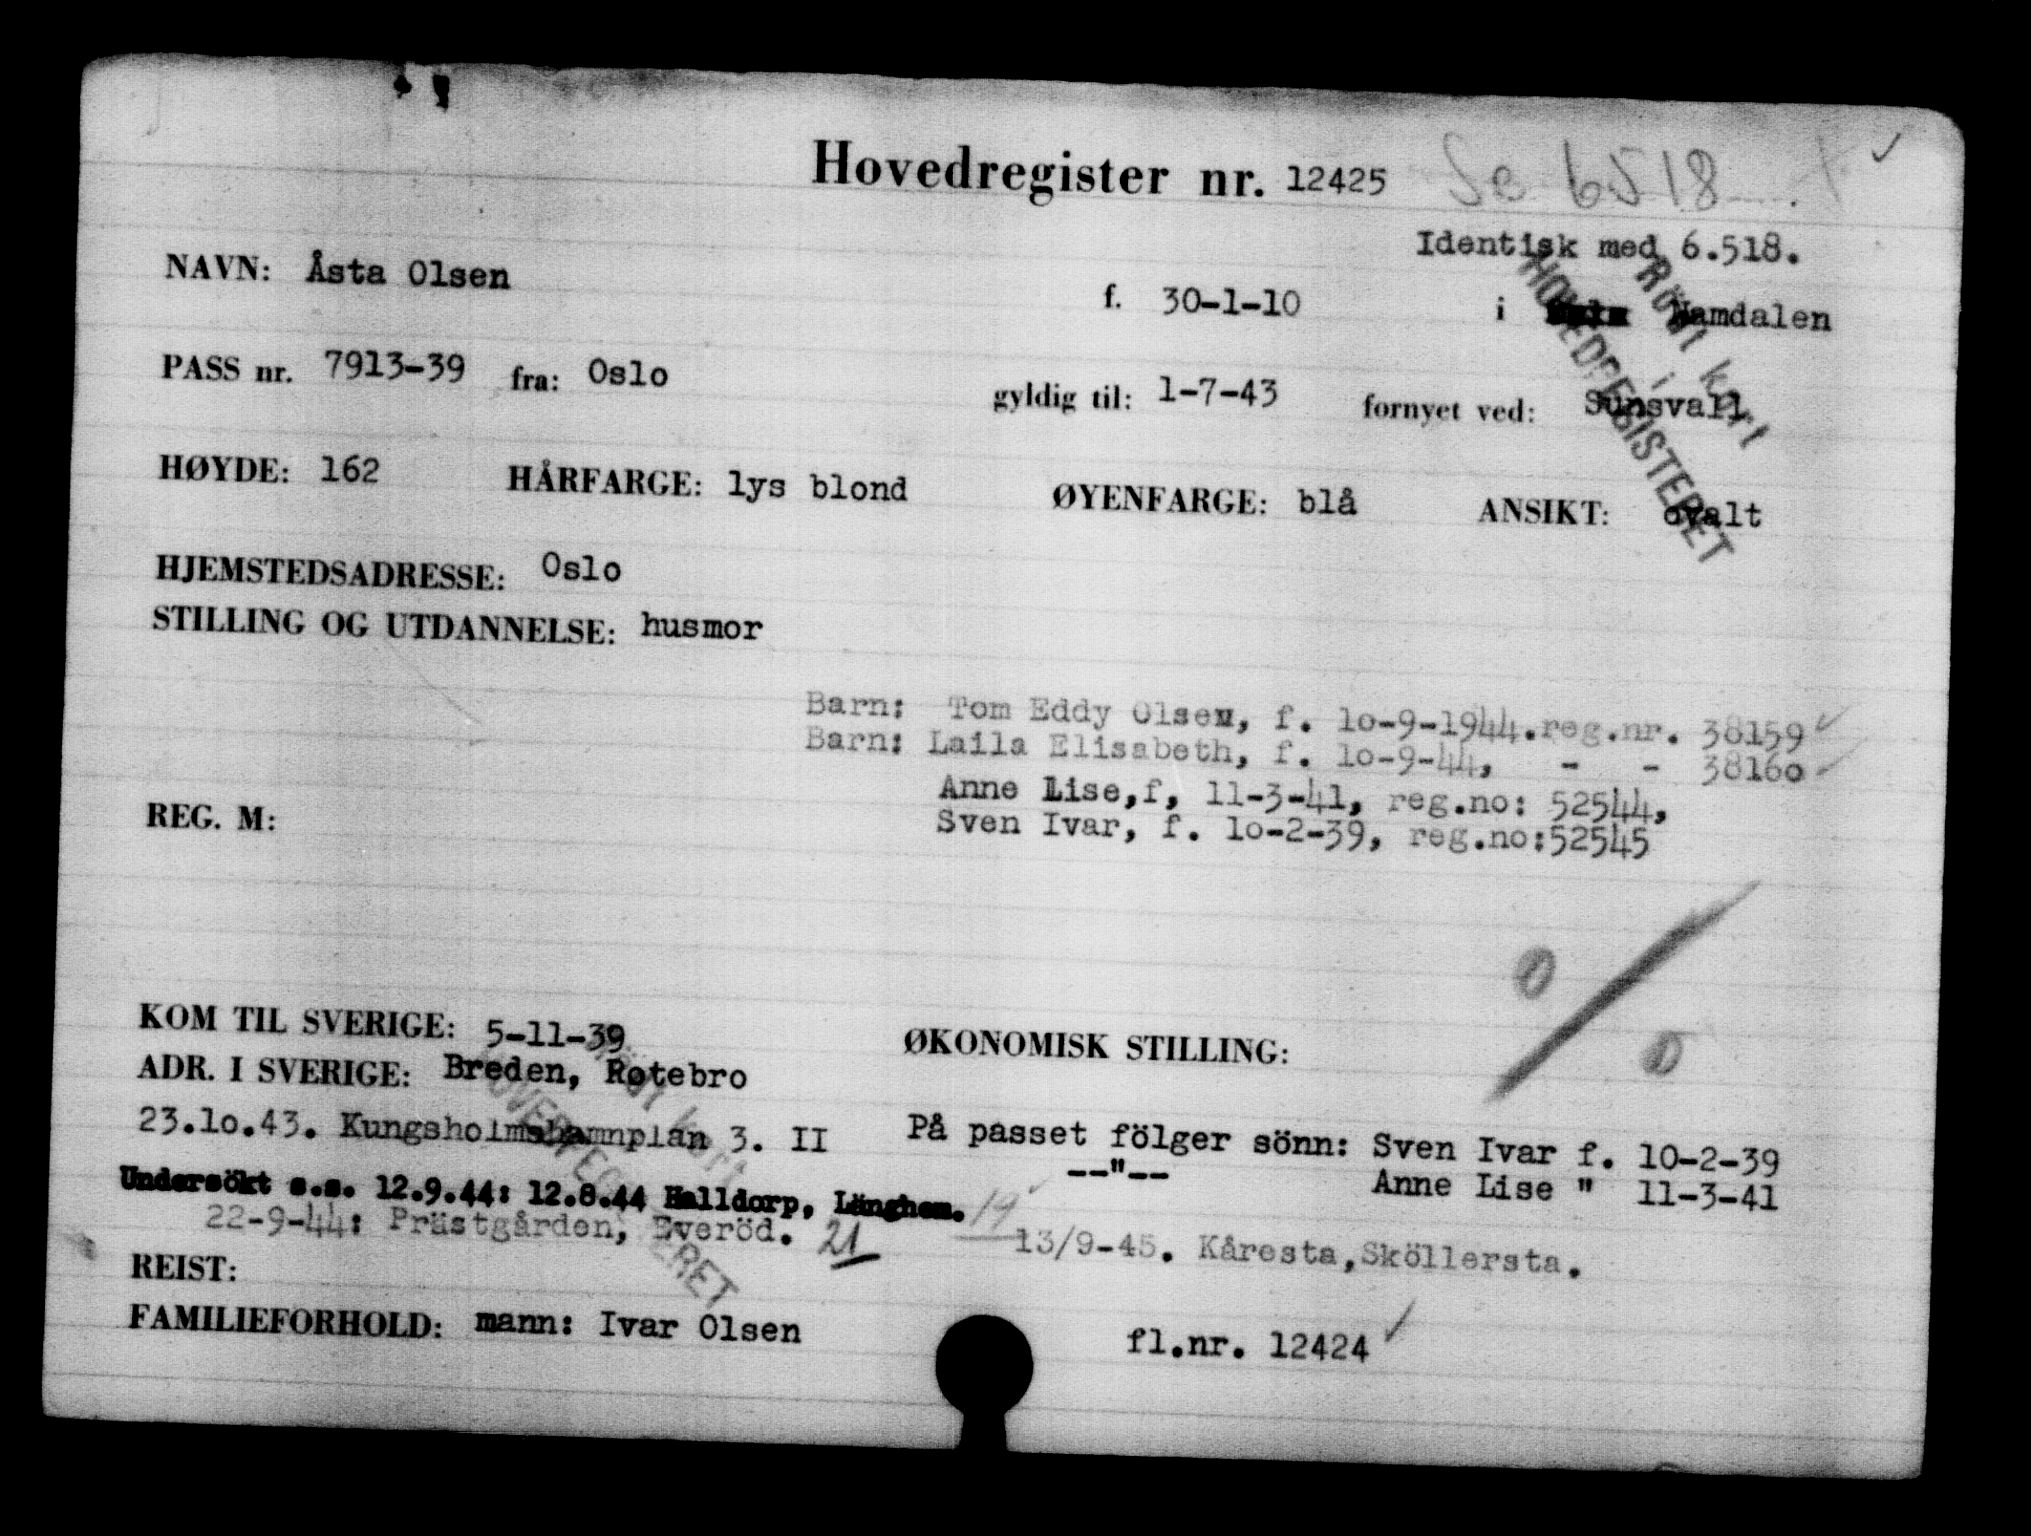 Hovedregister nr. 12425 Se 6518
Identisk med 6.518.
NAVN: Åsta Olsen f. 30-1-10 i Namdalen
PASS nr. 7913-39 fra: Oslo gyldig til: 1-7-43 fornyet ved: Sunsvall
HØYDE: 162 HÅRFARGE: lys blond ØYENFARGE: blå ANSIKT: ovalt
Rödt kort
i
HOVEDREGISTERET
HJEMSTEDSADRESSE: Oslo
STILLING OG UTDANNELSE: husmor
Barn: Tom Eddy Olsen, f. 10-9-1944.reg.nr. 38159
Barn: Laila Elisabeth, f. 10-9-44, - - 38160
Anne Lise,f, 11-3-41, reg.no: 52544,
REG. M: Sven Ivar, f. 10-2-39, reg.no:52545
KOM TIL SVERIGE: 5-11-39 ØKONOMISK STILLING:
ADR. I SVERIGE: Breden, Rotebro
23.10.43. Kungsholmshamnplan 3. II På passet fölger sönn: Sven Ivar f. 10-2-39
--"-- Anne Lise " 11-3-41
Undersökt s.s. 12.9.44: 12.8.44 Halldorp, Länghem. 19
22-9-44: Prästgården, Everöd. 21 13/9-45. Kåresta,Sköllersta.
Rödt kort
HOVEDREGISTERET
REIST:
FAMILIEFORHOLD: mann: Ivar Olsen fl.nr. 12424